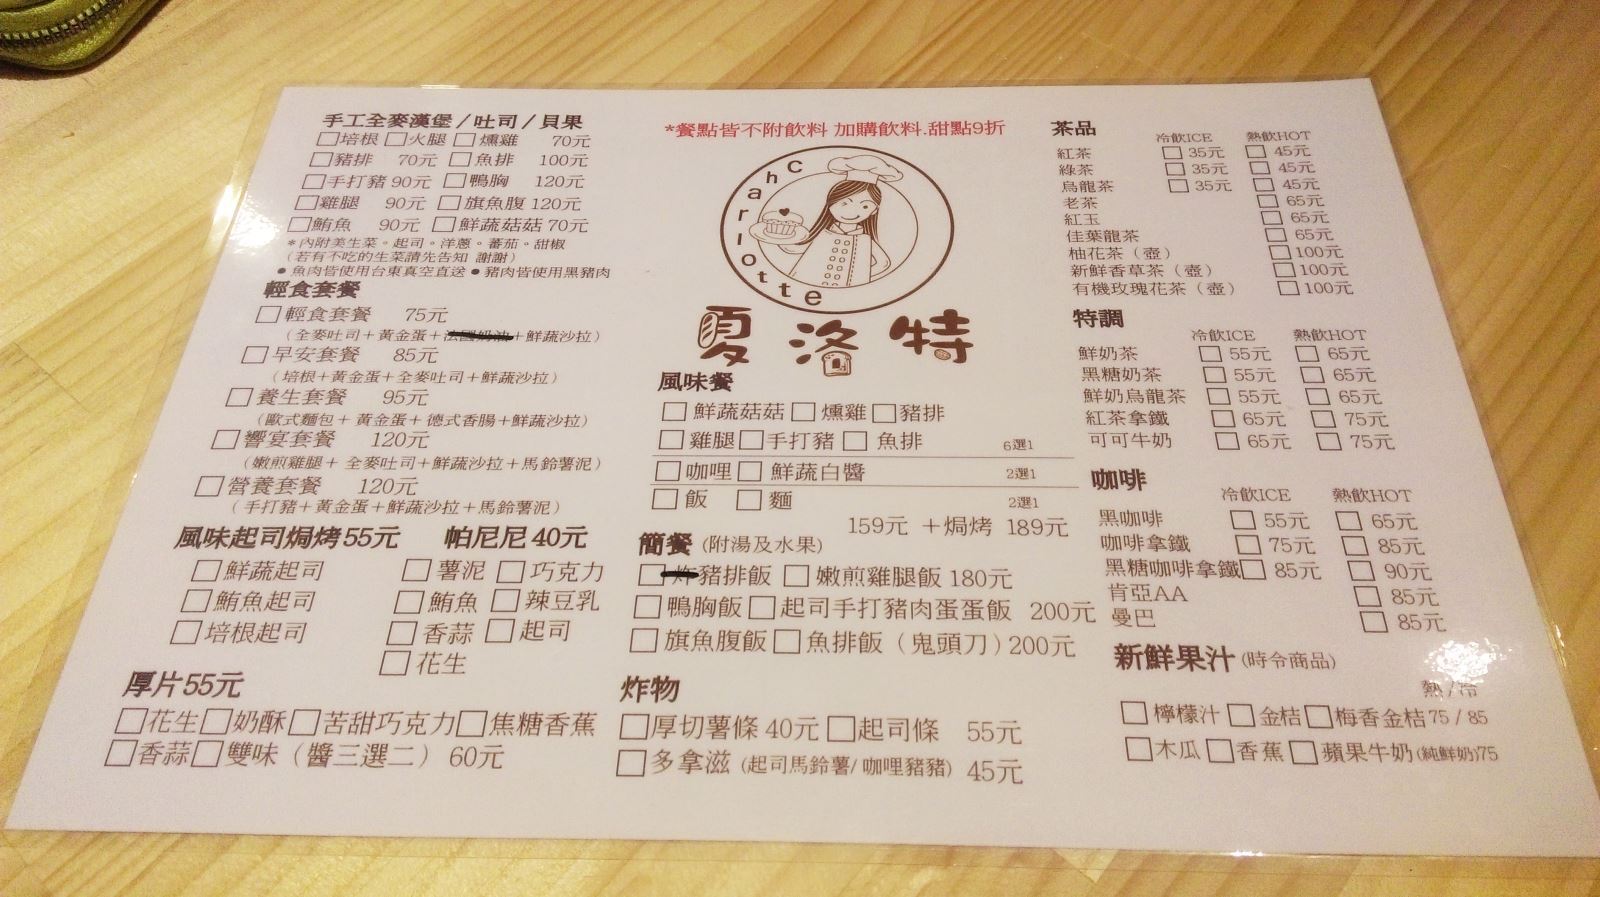 手工全麥漢堡/吐司/貝果
□培根 □火腿 □燻雞 70元
□豬排 70元 □魚排 100元
□手打豬 90元 □鴨胸 120元
□雞腿 90元 □旗魚腹 120元
□鮪魚 90元 □鮮蔬菇菇 70元
*內附美生菜。起司。洋蔥。蕃茄。甜椒
(若有不吃的生菜請先告知 謝謝)
●魚肉皆使用台東真空直送●豬肉皆使用黑豬肉
輕食套餐
□輕食套餐 75元
(全麥吐司+黃金蛋+法國奶油+鮮蔬沙拉)
□早安套餐 85元
(培根+黃金蛋+全麥吐司+鮮蔬沙拉)
□養生套餐 95元
(歐式麵包+黃金蛋+德式香腸+鮮蔬沙拉)
□響宴套餐 120元
(嫩煎雞腿+全麥吐司+鮮蔬沙拉+馬鈴薯泥)
□營養套餐 120元
(手打豬+黃金蛋+鮮蔬沙拉+馬鈴薯泥)
風味起司焗烤55元
□鮮蔬起司
□鮪魚起司
□培根起司
帕尼尼40元
□薯泥 □巧克力
□鮪魚 □辣豆乳
□香蒜 □起司
□花生
厚片55元
□花生□奶酥□苦甜巧克力□焦糖香蕉
□香蒜□雙味(醬三選二) 60元
*餐點皆不附飲料 加購飲料.甜點9折
Charlotte
夏洛特
風味餐
□鮮蔬菇菇 □燻雞 □豬排
□雞腿□手打豬 □魚排 6選1
□咖哩□鮮蔬白醬 2選1
□飯 □麵 2選1
159元 +焗烤 189元
簡餐(附湯及水果)
□炸豬排飯 □嫩煎雞腿飯 180元
□鴨胸飯□起司手打豬肉蛋蛋飯 200元
□旗魚腹飯□魚排飯(鬼頭刀) 200元
炸物
□厚切薯條 40元 □起司條 55元
□多拿滋(起司馬鈴薯/咖哩豬豬) 45元
茶品 冷飲ICE 熱飲HOT
紅茶 □35元 □45元
綠茶 □35元 □45元
烏龍茶 □35元 □45元
老茶 □65元
紅玉 □65元
佳葉龍茶 □65元
柚花茶(壺) □100元
新鮮香草茶(壺) □100元
有機玫瑰花茶(壺) □100元
特調 冷飲ICE 熱飲HOT
鮮奶茶 □55元 □65元
黑糖奶茶 □55元 □65元
鮮奶烏龍茶 □55元 □65元
紅茶拿鐵 □65元 □75元
可可牛奶 □65元 □75元
咖啡 冷飲ICE 熱飲HOT
黑咖啡 □55元 □65元
咖啡拿鐵 □75元 □85元
黑糖咖啡拿鐵□85元 □90元
肯亞AA □85元
曼巴 □85元
新鮮果汁(時令商品)
熱/冷
□檸檬汁 □金桔 □梅香金桔 75/85
□木瓜 □香蕉 □蘋果牛奶(純鮮奶)75